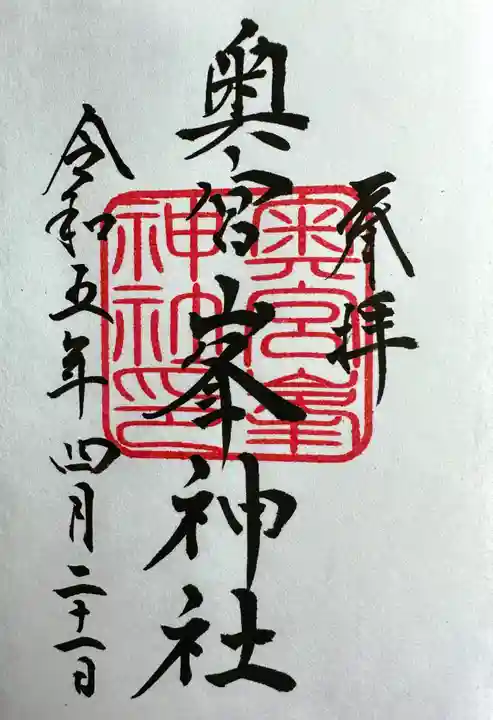 奉拝
奥宮峯神社
奥宮峯
神社印
令和五年四月二十一日